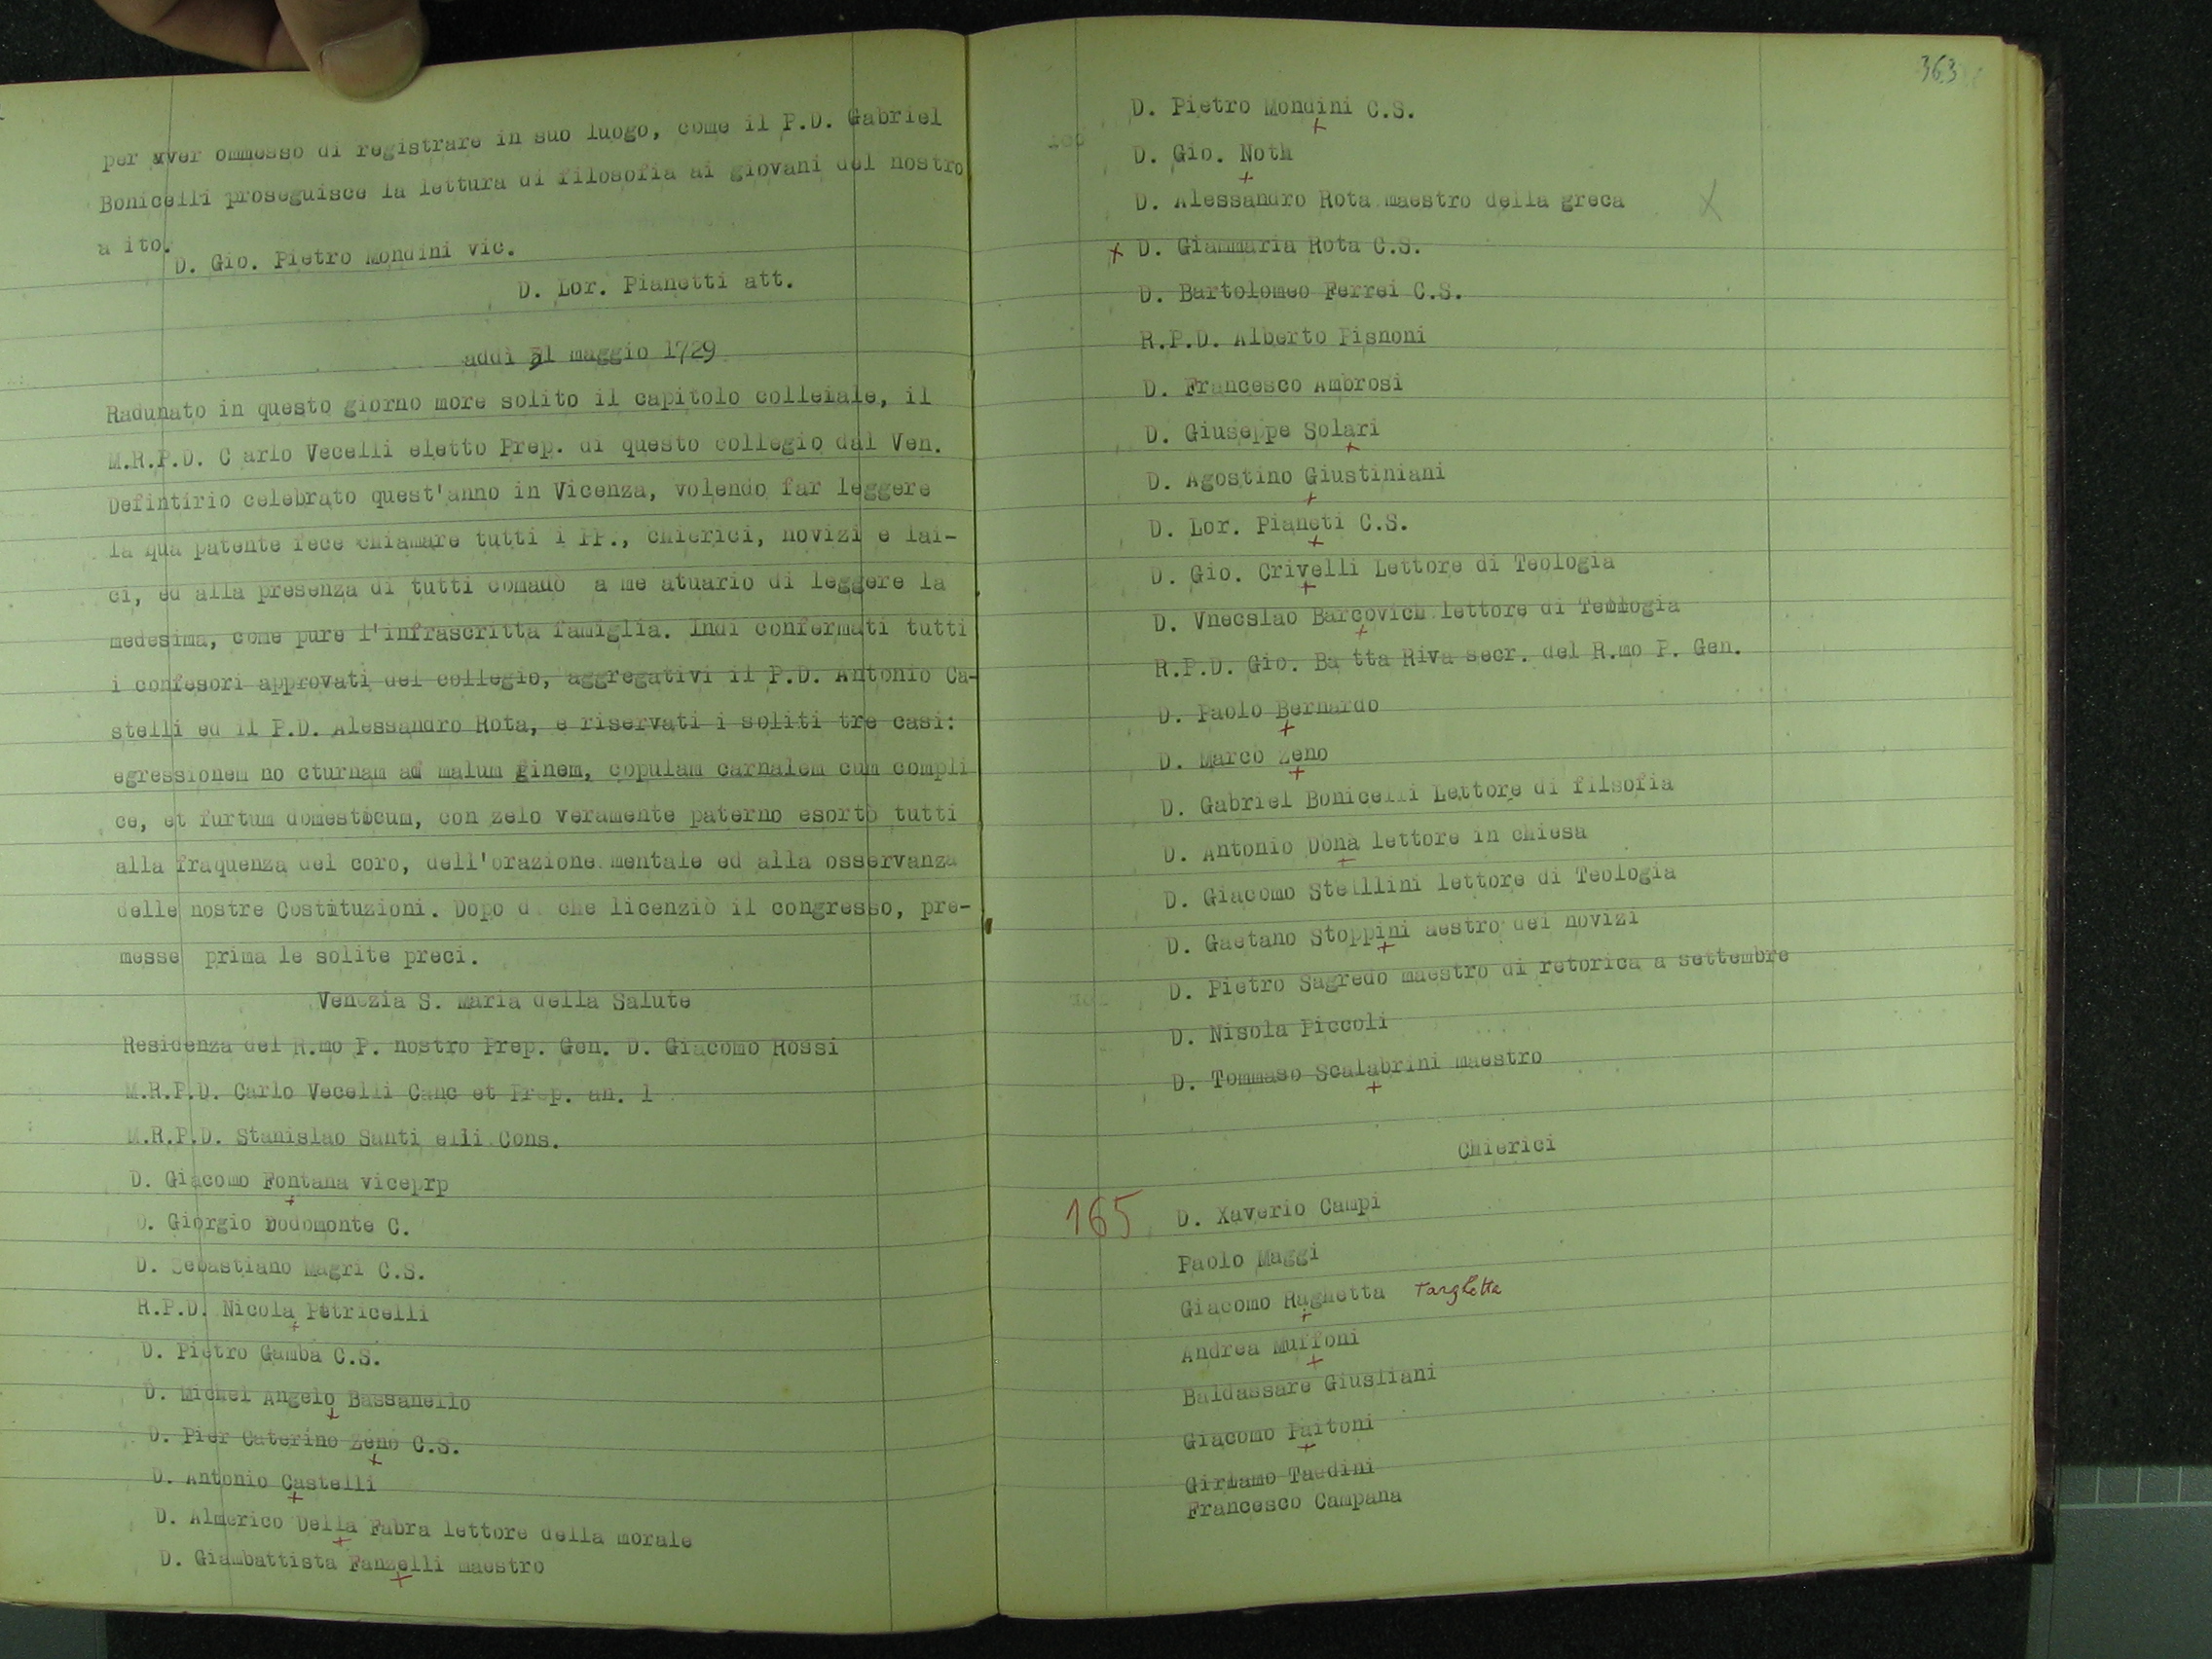 per aver ommesso di registrare in suo luogo, come il P.D. Gabriel
Bonicelli proseguisce la lettura di filosofia ai giovani del nostro
a ito.
D. Gio. Pietro Mondini vic.
D. Lor. Pianetti att.
addì 31 maggio 1729
Radunato in questo giorno more solito il capitolo colleiale, il
M.R.P.D. C arlo Vecelli eletto Prep. di questo collegio dal Ven.
Defintirio celebrato quest'anno in Vicenza, volendo far leggere
la qua patente fece chiamare tutti i PP., chierici, novizi e lai-
ci, ed alla presenza di tutti comadò a me atuario di leggere la
medesima, come pure l'infrascritta famiglia. Indi confermati tutti
i confesori approvati del collegio, aggregativi il P.D. Antonio Ca-
stelli ed il P.D. Alessandro Rota, e riservati i soliti tre casi:
egressionem no cturnam ad malum finem, copulam carnalem cum compli
ce, et furtum domesticum, con zelo veramente paterno esortò tutti
alla fraquenza del coro, dell'orazione mentale ed alla osservanza
delle nostre Costituzioni. Dopo d che licenziò il congresso, pre-
messe prima le solite preci.
Venezia S. Maria della Salute
Residenza del R.mo P. nostro Prep. Gen. D. Giacomo Rossi
M.R.P.D. Carlo Vecelli Canc et Prep. an. 1
M.R.P.D. Stanislao Santi elli Cons.
D. Giacomo Fontana viceprp
D. Giorgio Dodomonte C.
D. Sebastiano Magri C.S.
R.P.D. Nicola Petricelli
D. Pietro Gamba C.S.
D. Michel Angelo Bassanello
D. Pier Caterino Zeno C.S.
D. Antonio Castelli
D. Almerico Della Fabra lettore della morale
D. Giambattista Fanzelli maestro
363
D. Pietro Mondini C.S.
D. Gio. Noth
D. Alessandro Rota maestro della greca
x D. Giammaria Rota C.S.
D. Bartolomeo Ferrei C.S.
R.P.D. Alberto Pisnoni
D. Francesco Ambrosi
D. Giuseppe Solari
D. Agostino Giustiniani
D. Lor. Pianeti C.S.
D. Gio. Crivelli Lettore di Teologia
D. Vnecslao Barcovich lettore di Teologia
R.P.D. Gio. Ba tta Riva secr. del R.mo P. Gen.
D. Paolo Bernardo
D. Marco Zeno
D. Gabriel Bonicelli Lettore di filsofia
D. Antonio Donà lettore in chiesa
D. Giacomo Stelllini lettore di Teologia
D. Gaetano Stoppini aestro dei novizi
D. Pietro Sagredo maestro di retorica a settembre
D. Nisola Piccoli
D. Tommaso Scalabrini maestro
Chierici
165 D. Xaverio Campi
Paolo Maggi
Giacomo Raghetta Targhetta
Andrea Muffoni
Baldassare Giusliani
Giacomo Paitoni
Girlamo Taedini
Francesco Campana